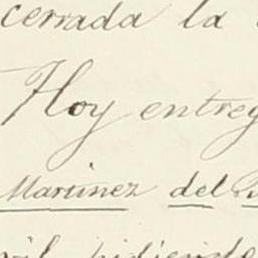 cerrada la
Hoy entreg
Martinez del
pidiendo